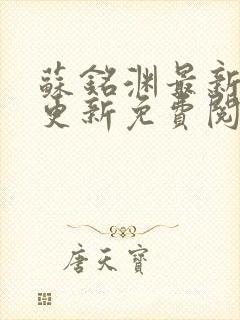 蘇銘淵最新
更新免費閱
唐天寶